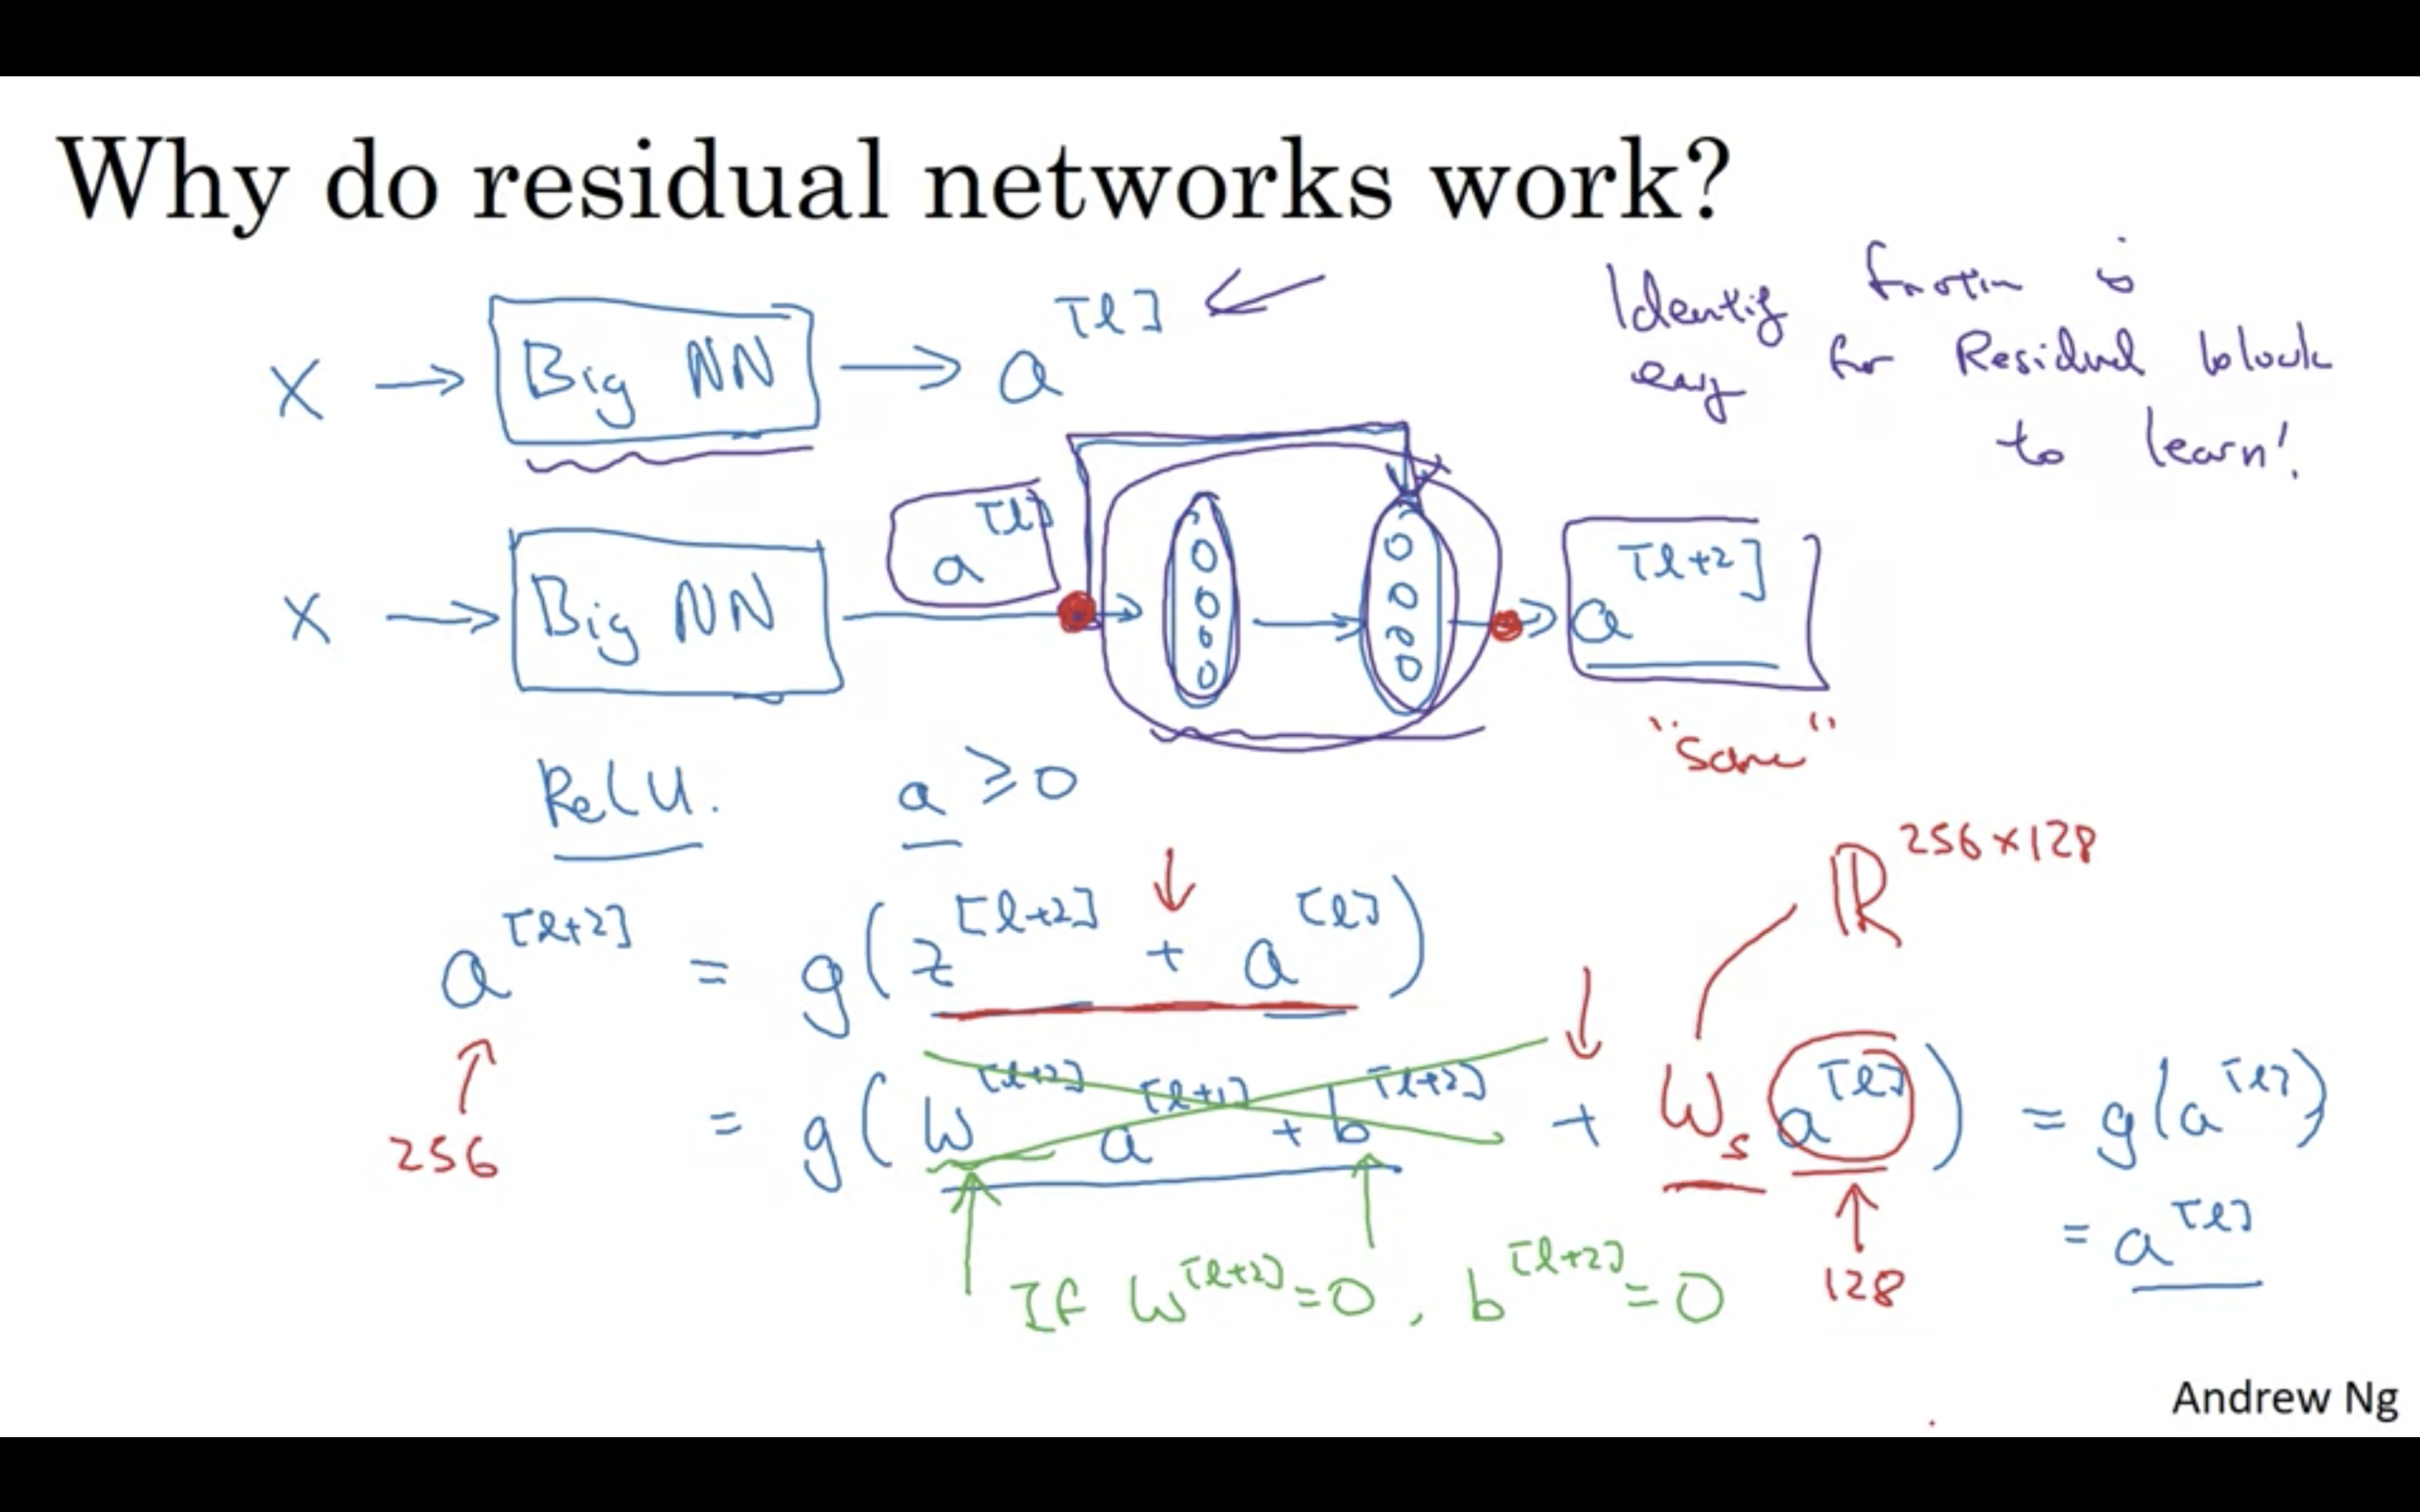 Why do residual networks work?
X → Big NN → a^[l]
Identity function is
easy for Residual block
to learn!
X → Big NN a^[l] → a^[l+2]
"Same"
ReLU. a ≥ 0
ℝ^256×128
a^[l+2] = g(z^[l+2] + a^[l])
= g(W^[l+2] a^[l+1] + b^[l+2] + W_s a^[l]) = g(a^[l])
256
= a^[l]
If W^[l+2] = 0, b^[l+2] = 0
128
Andrew Ng